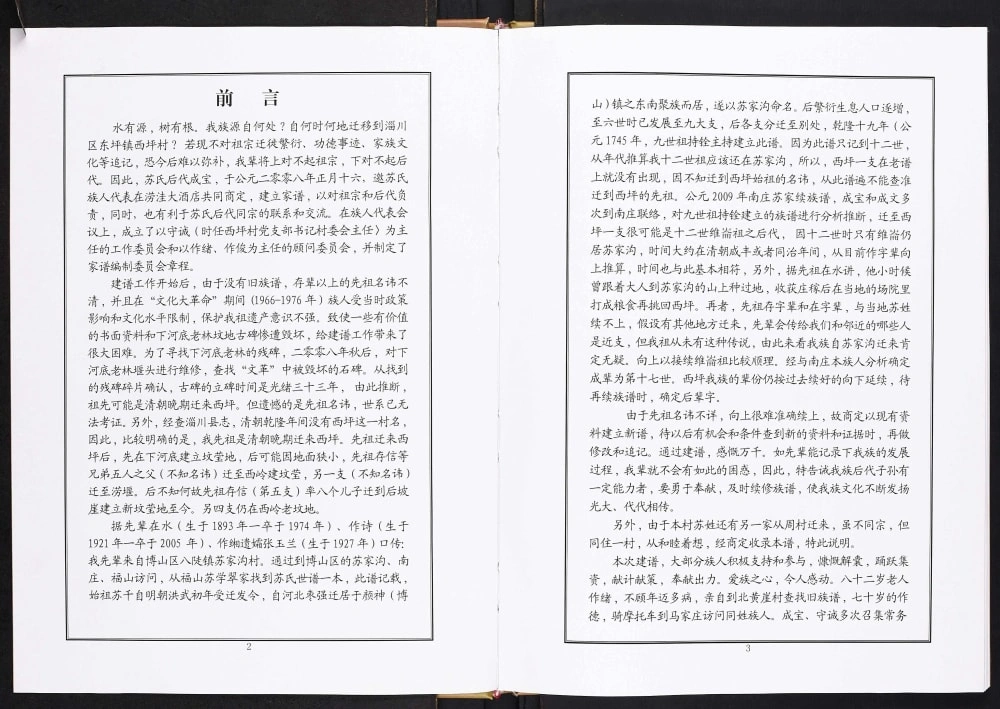 前 言
水有源，树有根。我族源自何处？自何时何地迁移到淄川
区东坪镇西坪村？若现不对祖宗迁徙繁衍、功德事迹、家族文
化等追记，恐今后难以弥补，我辈将上对不起祖宗，下对不起后
代。因此，苏氏后代成宝，于公元二零零八年正月十六，邀苏氏
族人代表在涝洼大酒店共同商定，建立家谱，以对祖宗和后代负
责，同时，也有利于苏氏后代同宗的联系和交流。在族人代表会议
上，成立了以守诚（时任西坪村党支部书记村委会主任）为主
任的工作委员会和以作绪、作俊为主任的顾问委员会，并制定了
家谱编制委员会章程。
建谱工作开始后，由于没有旧族谱，存辈以上的先祖名讳不
清，并且在“文化大革命”期间（1966-1976年）族人受当时政策
影响和文化水平限制，保护我祖遗产意识不强。致使一些有价值
的书面资料和下河底老林坟地古碑惨遭毁坏，给建谱工作带来了
很大困难。为了寻找下河底老林的残碑，二零零八年秋后，对下
河底老林堰头进行维修，查找“文革”中被毁坏的石碑。从找到
的残碑碎片确认，古碑的立碑时间是光绪三十三年， 由此推断，
祖先可能是清朝晚期迁来西坪。但遗憾的是先祖名讳，世系已无
法考证。另外，经查淄川县志，清朝乾隆年间没有西坪这一村名，
因此，比较明确的是，我先祖是清朝晚期迁来西坪。先祖迁来西
坪后，先在下河底建立坟莹地，后可能因地面狭小，先祖存信等
兄弟五人之父（不知名讳）迁至西岭建坟莹，另一支（不知名讳）
迁至涝堰。后不知何故先祖存信（第五支）率八个儿子迁到后坡
崖建立新坟莹地至今。另四支仍在西岭老坟地。
据先辈在水（生于1893年一卒于1974年）、作诗（生于
1921年一卒于2005年）、作缃遗孀张玉兰（生于1927年）口传：
我先辈来自博山区八陡镇苏家沟村。通过到博山区的苏家沟、南
庄、福山访问，从福山苏学翠家找到苏氏世谱一本，此谱记载，
始祖苏千自明朝洪武初年受迁发今，自河北枣强迁居于颜神（博
2
山）镇之东南聚族而居，遂以苏家沟命名。后繁衍生息人口逐增，
至六世时已发展至九大支，后各支分迁至别处，乾隆十九年（公
元1745年，九世祖持铨主持建立此谱。因为此谱只记到十二世，
从年代推算我十二世祖应该还在苏家沟，所以，西坪一支在老谱
上就没有出现，因不知迁到西坪始祖的名讳，从此谱遍不能查准
迁到西坪的先祖。公元2009年南庄苏家续族谱，成宝和成文多
次到南庄联络，对九世祖持铨建立的族谱进行分析推断，迁至西
坪一支很可能是十二世维淄祖之后代， 因十二世时只有维淄仍
居苏家沟，时间大约在清朝咸丰或者同治年间，从目前作字辈向
上推算，时间也与此基本相符，另外，据先祖在水讲，他小时候
曾跟着大人到苏家沟的山上种过地，收获庄稼后在当地的场院里
打成粮食再挑回西坪。再者，先祖存字辈和在字辈，与当地苏姓
续不上，假设有其他地方迁来，先辈会传给我们和邻近的哪些人
是近支，但我祖从未有这种传说，由此来看我族自苏家沟迁来肯
定无疑。向上以接续维淄祖比较顺理。经与南庄本族人分析确定
成辈为第十七世。西坪我族的辈份仍按过去续好的向下延续，待
再续族谱时，确定后辈字。
由于先祖名讳不详，向上很难准确续上，故商定以现有资
料建立新谱，待以后有机会和条件查到新的资料和证据时，再做
修改和追记。通过建谱，感慨万千。如先辈能记录下我族的发展
过程，我辈就不会有如此的困惑，因此，特告诫我族后代子孙有
一定能力者，要勇于奉献，及时续修族谱，使我族文化不断发扬
光大、代代相传。
另外，由于本村苏姓还有另一家从周村迁来，虽不同宗，但
同住一村，从和睦着想，经商定收录本谱，特此说明。
本次建谱，大部分族人积极支持和参与，慷慨解囊，踊跃集
资，献计献策，奉献出力。爱族之心，令人感动。八十二岁老人
作绪，不顾年迈多病，亲自到北黄崖村查找旧族谱，七十岁的作
德，骑摩托车到马家庄访问同姓族人。成宝、守诚多次召集常务
3